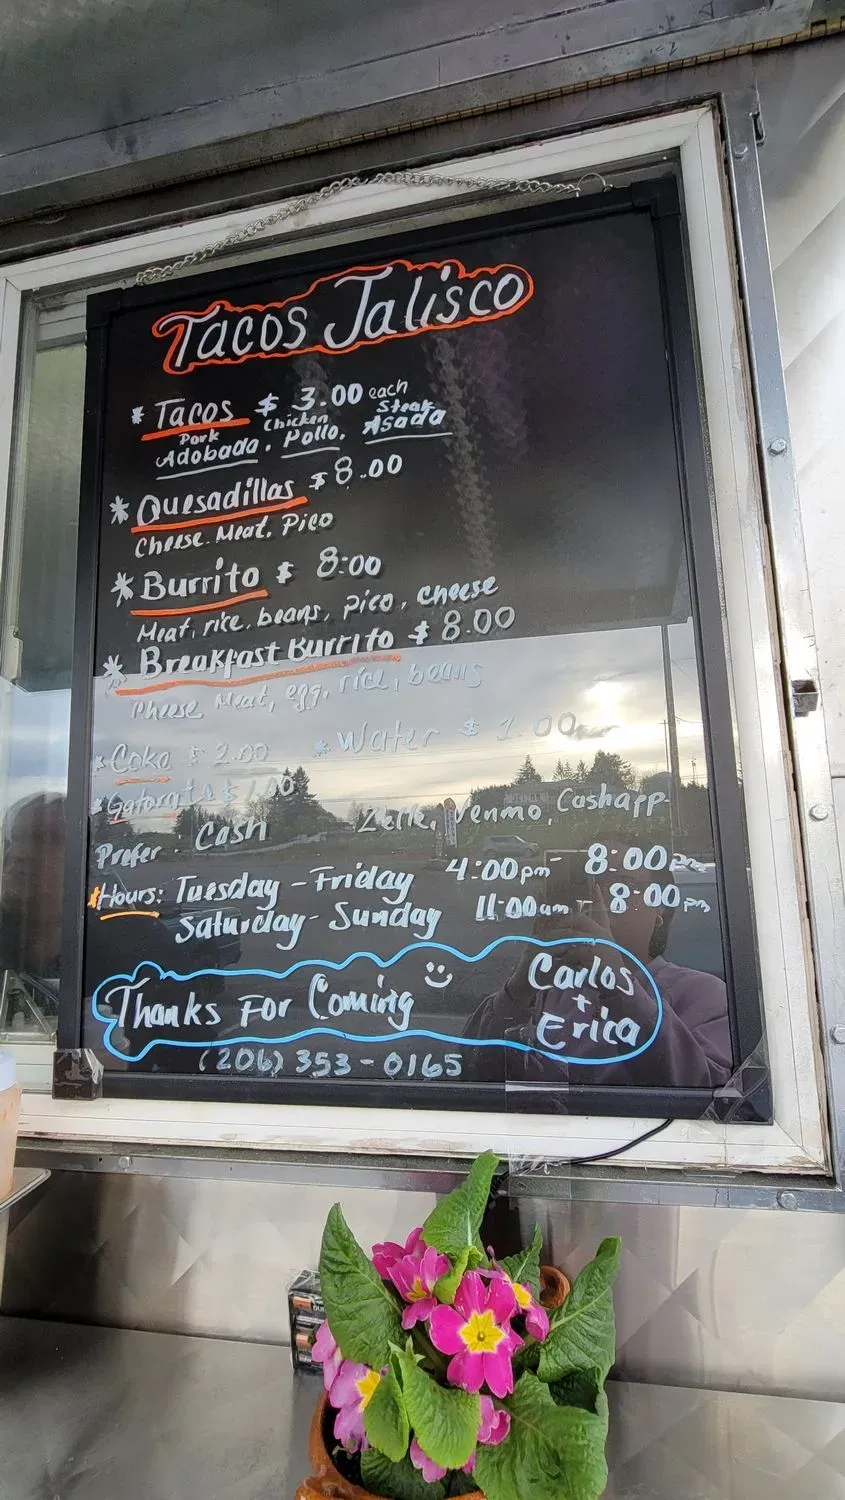 Tacos Jalisco
* Tacos $ 3.00 each
Pork Chicken Steak
Adobada. Pollo. Asada
* Quesadillas $ 8.00
Cheese. Meat. Pico
* Burrito $ 8:00
Meat, rice, beans, pico, cheese
* Breakfast Burrito $ 8.00
Cheese Meat, egg, rice, beans
* Coke $ 2.00 * Water $ 1.00
* Gatorate $
Prefer. Cash Venmo, Cashapp
* Hours: Tuesday - Friday 4:00pm - 8:00pm
Saturday - Sunday 11:00am - 8:00pm
Thanks For Coming Carlos
+
Erica
(206) 353-0165